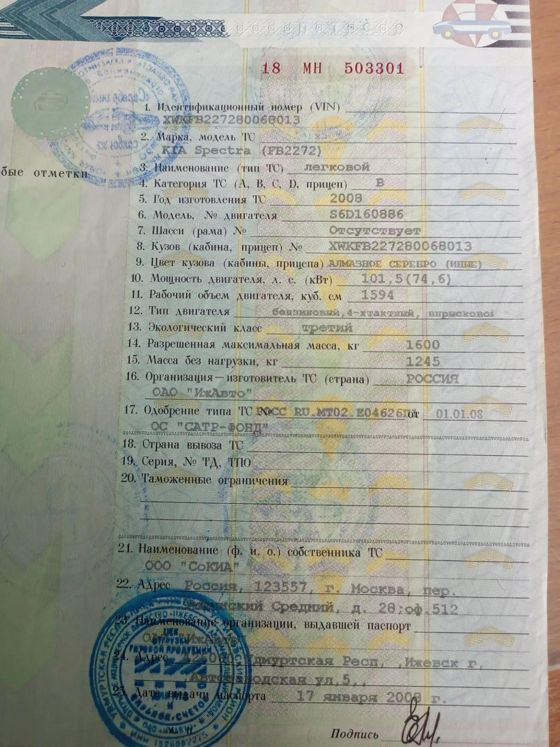 18 МН 503301
1. Идентификационный номер (VIN)
XWKFB227280068013
2. Марка, модель ТС
KIA Spectra (FB2272)
бые отметки
3. Наименование (тип ТС) легковой
4. Категория ТС (A, B, C, D, прицеп) B
5. Год изготовления ТС 2008
6. Модель, № двигателя S6D160886
7. Шасси (рама) № Отсутствует
8. Кузов (кабина, прицеп) № XWKFB227280068013
9. Цвет кузова (кабины, прицепа) АЛМАЗНОЕ СЕРЕБРО (ИНЫЕ)
10. Мощность двигателя, л. с. (кВт) 101,5(74,6)
11. Рабочий объем двигателя, куб. см 1594
12. Тип двигателя бензиновый,4-хтактный, впрысковой
13. Экологический класс третий
14. Разрешенная максимальная масса, кг 1600
15. Масса без нагрузки, кг 1245
16. Организация—изготовитель ТС (страна) РОССИЯ
ОАО "ИжАвто"
17. Одобрение типа ТС № РОСС RU.МТ02.Е04626 от 01.01.08
ОС "САТР-ФОНД"
18. Страна вывоза ТС
19. Серия, № ТД, ТПО
20. Таможенные ограничения
21. Наименование (ф. и. о.) собственника ТС
ООО "СоКИА"
22. Адрес Россия, 123557, г. Москва, пер.
Средний, д. 28;оф.512
23. Наименование организации, выдавшей паспорт
24. Адрес Удмуртская Респ, ,Ижевск г,
,Автозаводская ул,5,,
25. Дата выдачи паспорта 17 января 2008 г.
Подпись